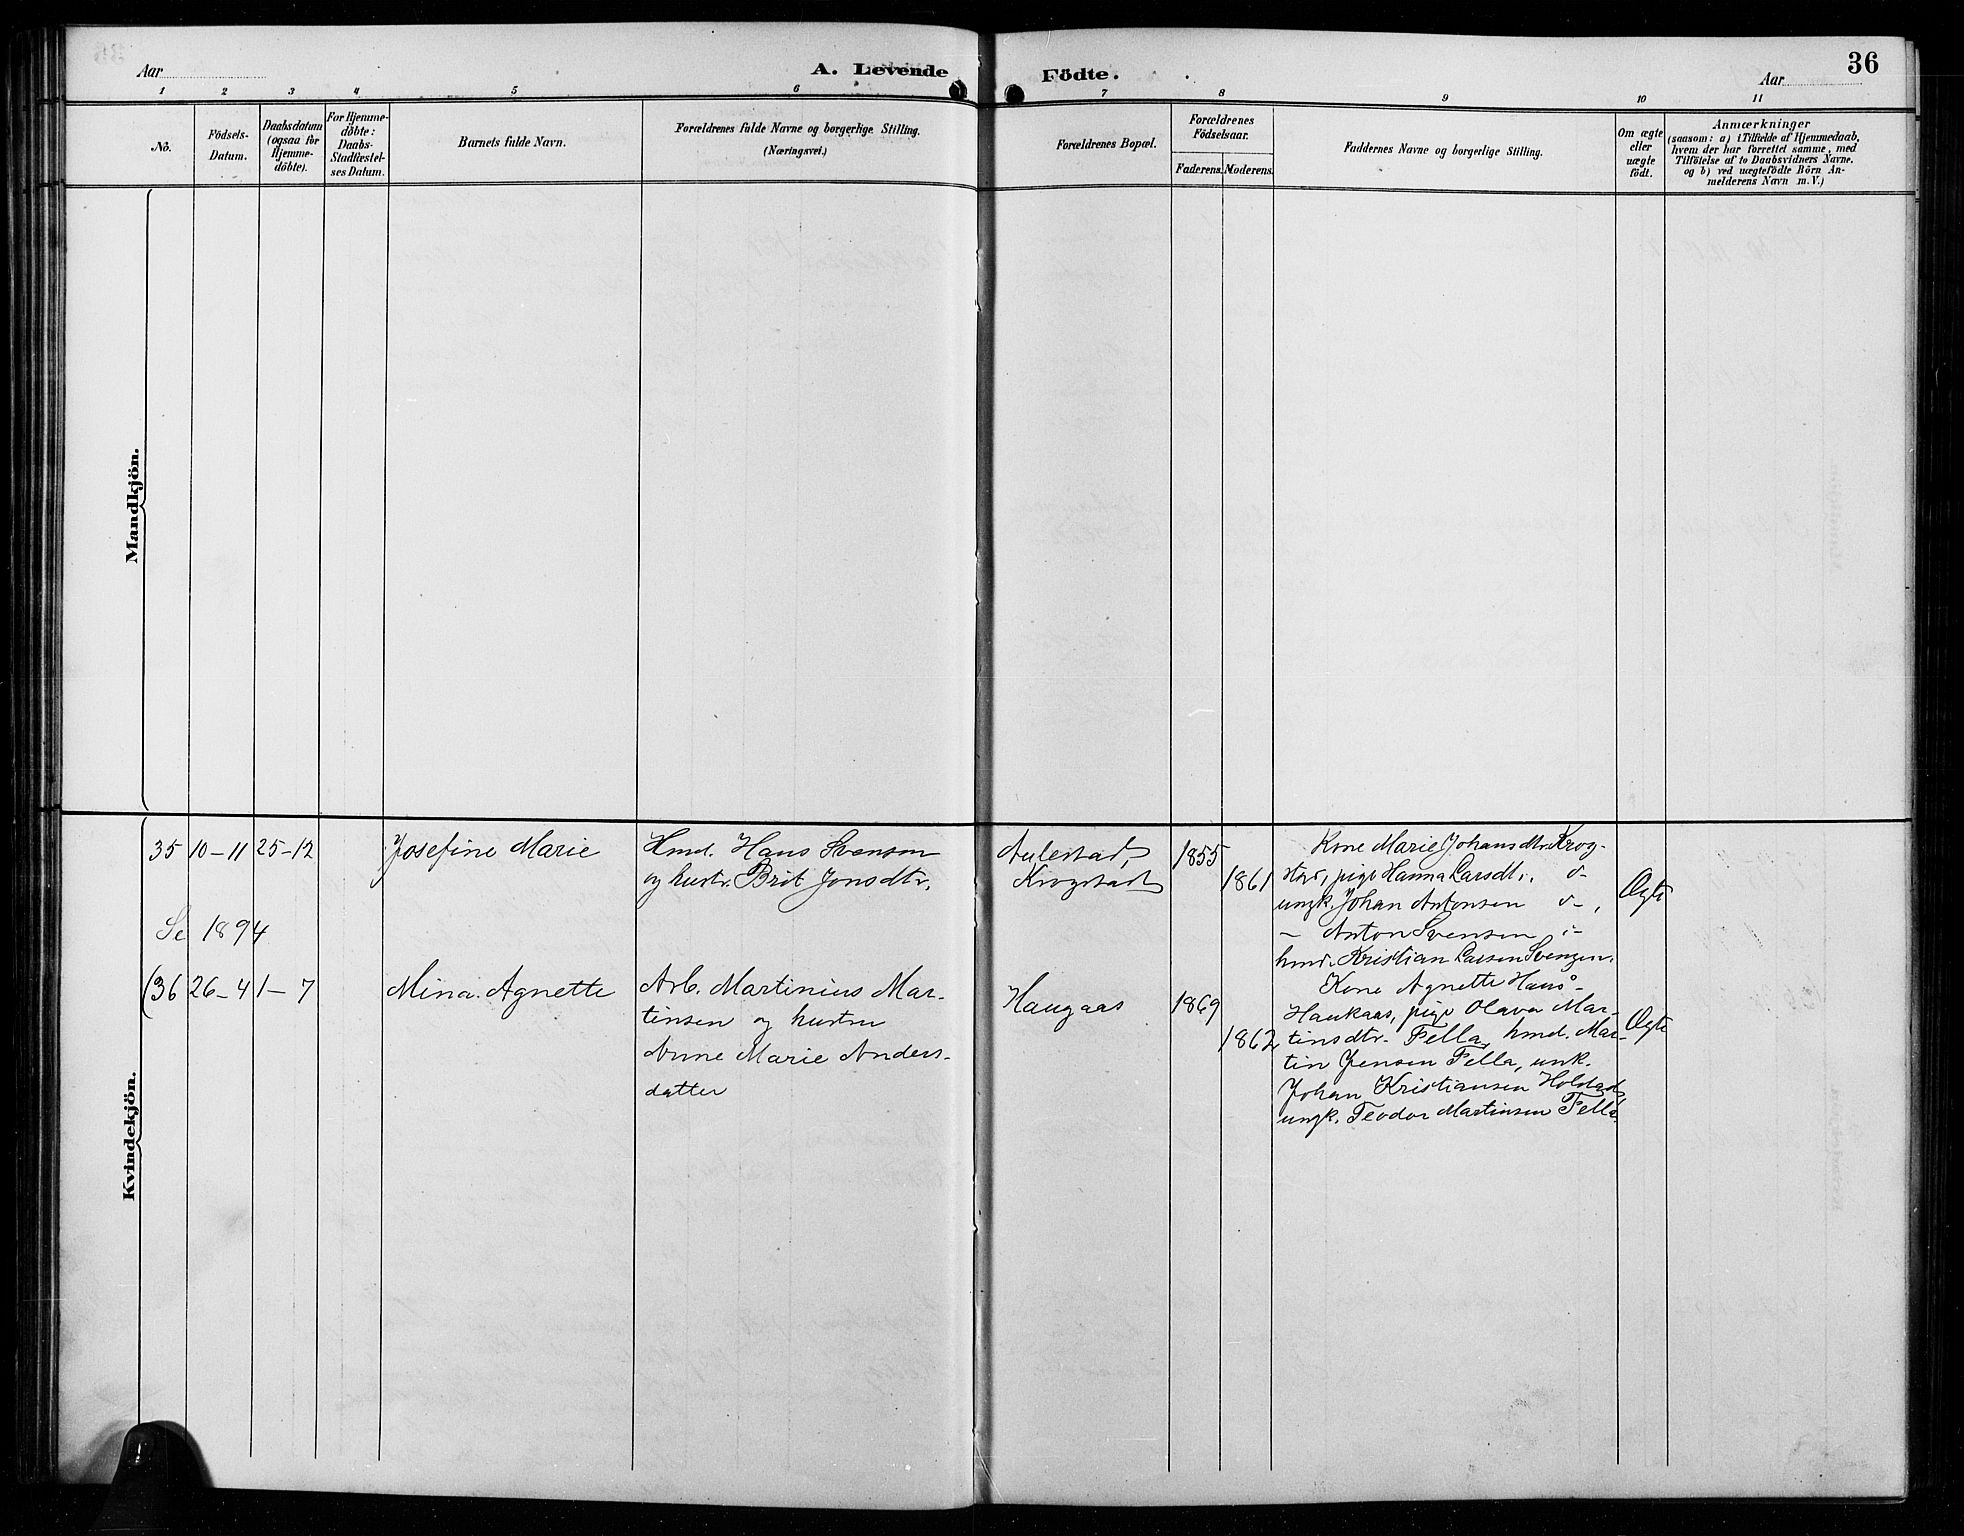 36
Aar
A. Levende
Födte.
Aar
1 2 3 4 5 6 7 8 9 10 11
No.
Födsels-
Datum.
Daabsdatum
(ogsaa for
Hjemme-
döbte).
For Hjemme-
döbte:
Daabs-
Stadfæstel-
ses Datum.
Barnets fulde Navn.
Forældrenes fulde Navne og borgerlige Stilling.
(Næringsvei.)
Forældrenes Bopæl.
Forældrenes
Födselsaar.
Faderens. Moderens.
Faddernes Navne og borgerlige Stilling.
Om ægte
eller
uægte
födt.
Anmærkninger
(saasom: a) i Tilfælde af Hjemmedaab,
hvem der har forrettet samme, med
Tilföielse af to Daabsvidners Navne.
og b) ved uægtefödte Börn An-
melderens Navn m. V.)
Mandkjön.
Kvindekjön.
35 10-11 25-12
Josefine Marie
Hmd. Hans Svensen
og hustr. Brit Jonsdtr.
Aulestad,
Krogstad
1855
1861
Kone Marie Johansdtr. Krog-
stad, pige Hanna Larsdt. d-
ungk. Johan Antonsen d-,
- Anton Svensen -
hmd. Kristian Larsen Svenzen.
Ægte
Se 1894
(36 26-4 1-7
Mina Agnette
Arb. Martinius Mar-
tinsen og hustru
Anne Marie Anders-
datter
Haugaas
1869
1862
Kone Agnette Hans-
Haukaas, pige Olava Mar-
tinsdtr. Fella, hmd. Mar-
tin Jensen Fella, unk.
Johan Kristiansen Holstad
ungk. Teodor Martinsen Fella.
Ægte